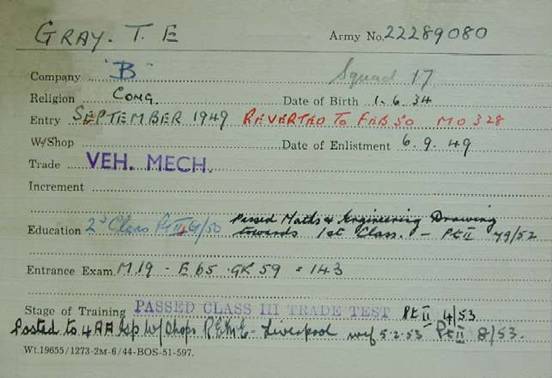 GRAY. T. E Army No. 22289080
Company "B" Squad 17
Religion CONG. Date of Birth 1.6.34
Entry SEPTEMBER 1949 REVERTED TO FEB 50 MO 328
W/Shop Date of Enlistment 6.9.49
Trade VEH. MECH.
Increment
Passed Maths & Engineering Drawing
Education 2nd Class Pt II 4/50 towards 1st Class. - Pt II 49/52
Entrance Exam. M.19 - E 65 - GK 59 = 143
Stage of Training PASSED CLASS III TRADE TEST Pt II 4/53
Posted to 4 AA Gp W/Shops REME - Liverpool wef 5-2-53 Pt II 8/53.
Wt.19655/1273-2M-6/44-BOS-51-597.